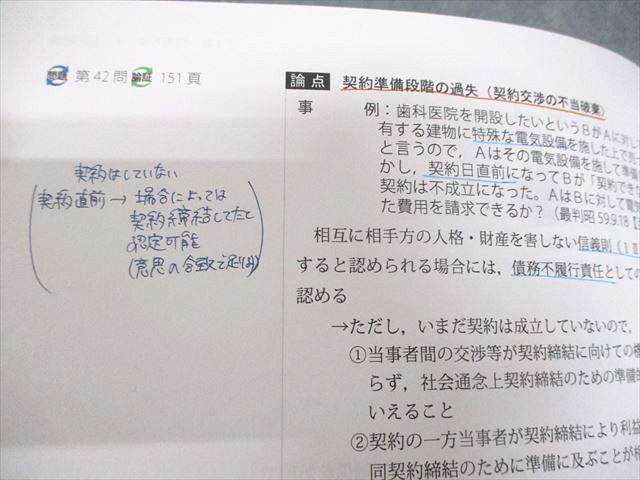 問題 第42問 論証 151頁
契約はしていない
契約直前→場合によっては
契約締結してたと
認定可能
(意思の合致で足りる)
論点 契約準備段階の過失(契約交渉の不当破棄)
事 例:歯科医院を開設したいというBがAに対し
有する建物に特殊な電気設備を施した上で
と言うので,Aはその電気設備を施して準備
かし,契約日直前になってBが「契約でき
契約は不成立になった。AはBに対して電気
た費用を請求できるか?(最判昭59.9.18
相互に相手方の人格・財産を害しない信義則(1Ⅱ
すると認められる場合には,債務不履行責任としての
認める
→ただし,いまだ契約は成立していないので,
①当事者間の交渉等が契約締結に向けての
らず,社会通念上契約締結のための準備
いえること
②契約の一方当事者が契約締結により利益
同契約締結のために準備に及ぶことが